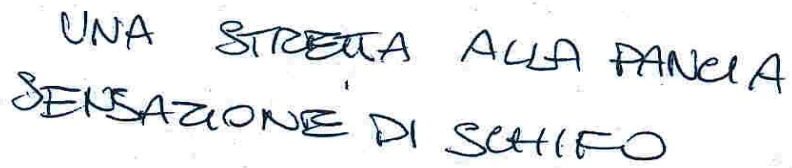 UNA STRETTA ALLA PANCIA
SENSAZIONE DI SCHIFO